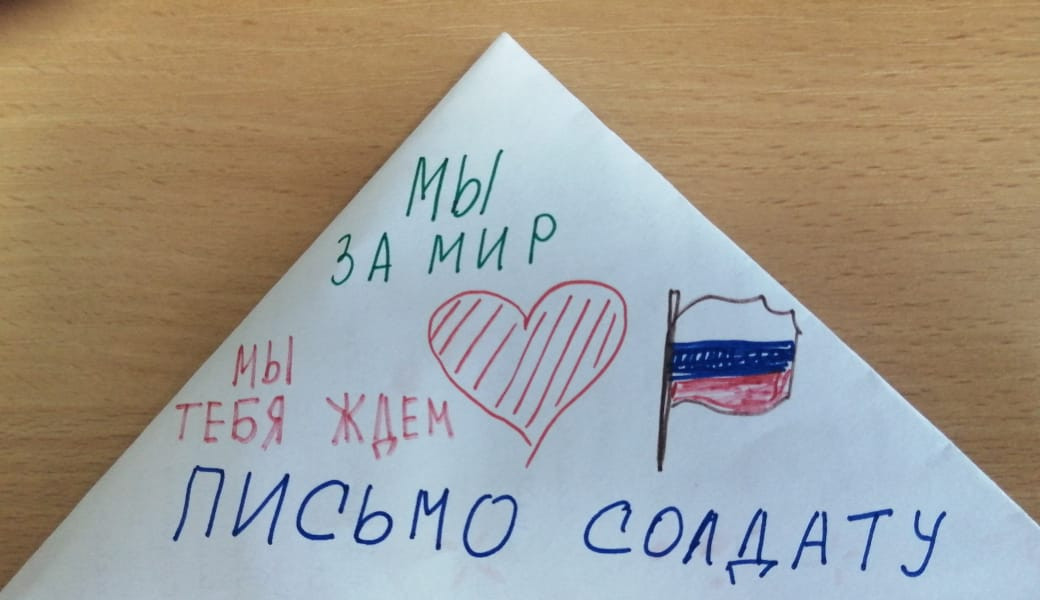 МЫ
ЗА МИР
МЫ
ТЕБЯ ЖДЕМ
ПИСЬМО СОЛДАТУ